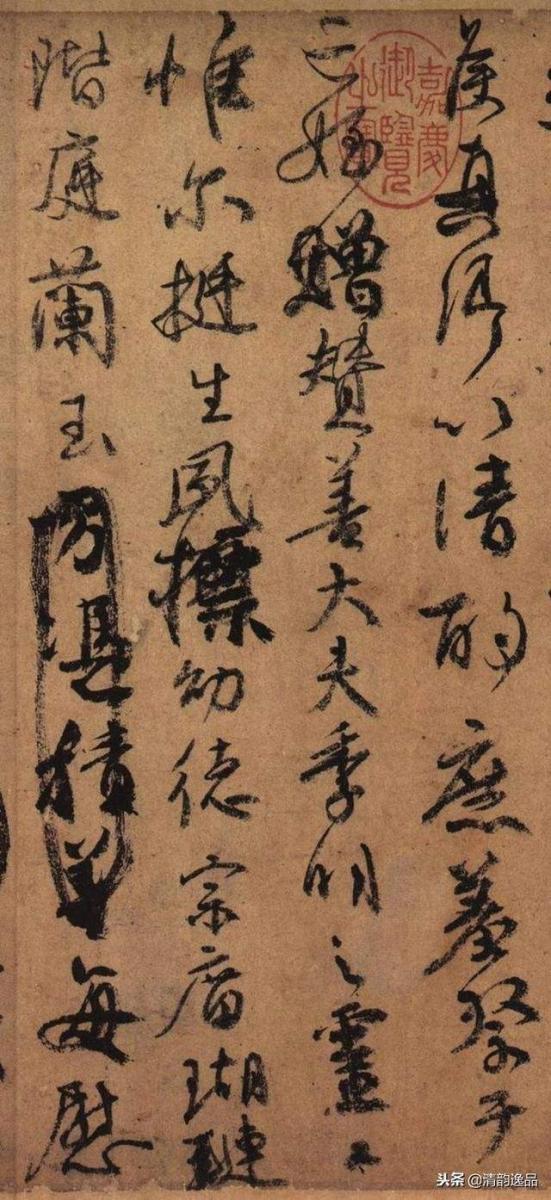 侯真卿以清酌庶羞祭于
亡姪贈贊善大夫季明之靈曰
惟尔挺生夙標幼德宗廟瑚璉
階庭蘭玉方憑積善每慰
嘉慶御覽之寶
头条 @清韵逸品